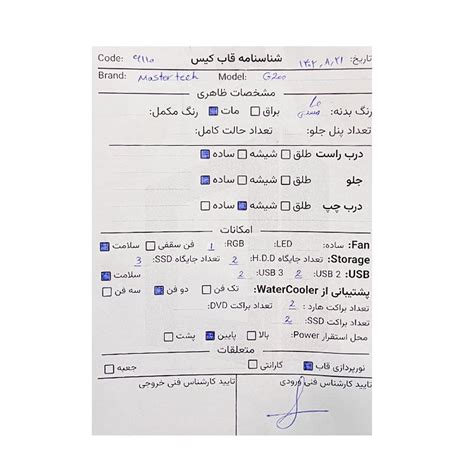 تاریخ: ۱۴۰۲,۸,۲۱ شناسنامه قاب کیس Code:
Brand: Master tech Model: G200
مشخصات ظاهری
رنگ بدنه: براق مات رنگ مکمل:
تعداد پنل جلو: تعداد حالت کامل:
درب راست طلق شیشه ساده
جلو طلق شیشه ساده
درب چپ طلق شیشه ساده
امکانات
Fan: ساده: LED: RGB: 1 فن سقفی سلامت
Storage: تعداد جایگاه H.D.D: 2 تعداد جایگاه SSD: 3
USB: USB 2 2 USB 3 2 سلامت
پشتیبانی از WaterCooler تک فن دو فن سه فن
تعداد براکت هارد: 2 تعداد براکت DVD:
تعداد براکت SSD: 2
محل استقرار Power: بالا پایین پشت
متعلقات
نورپردازی قاب گارانتی جعبه
تایید کارشناس فنی ورودی تایید کارشناس فنی خروجی